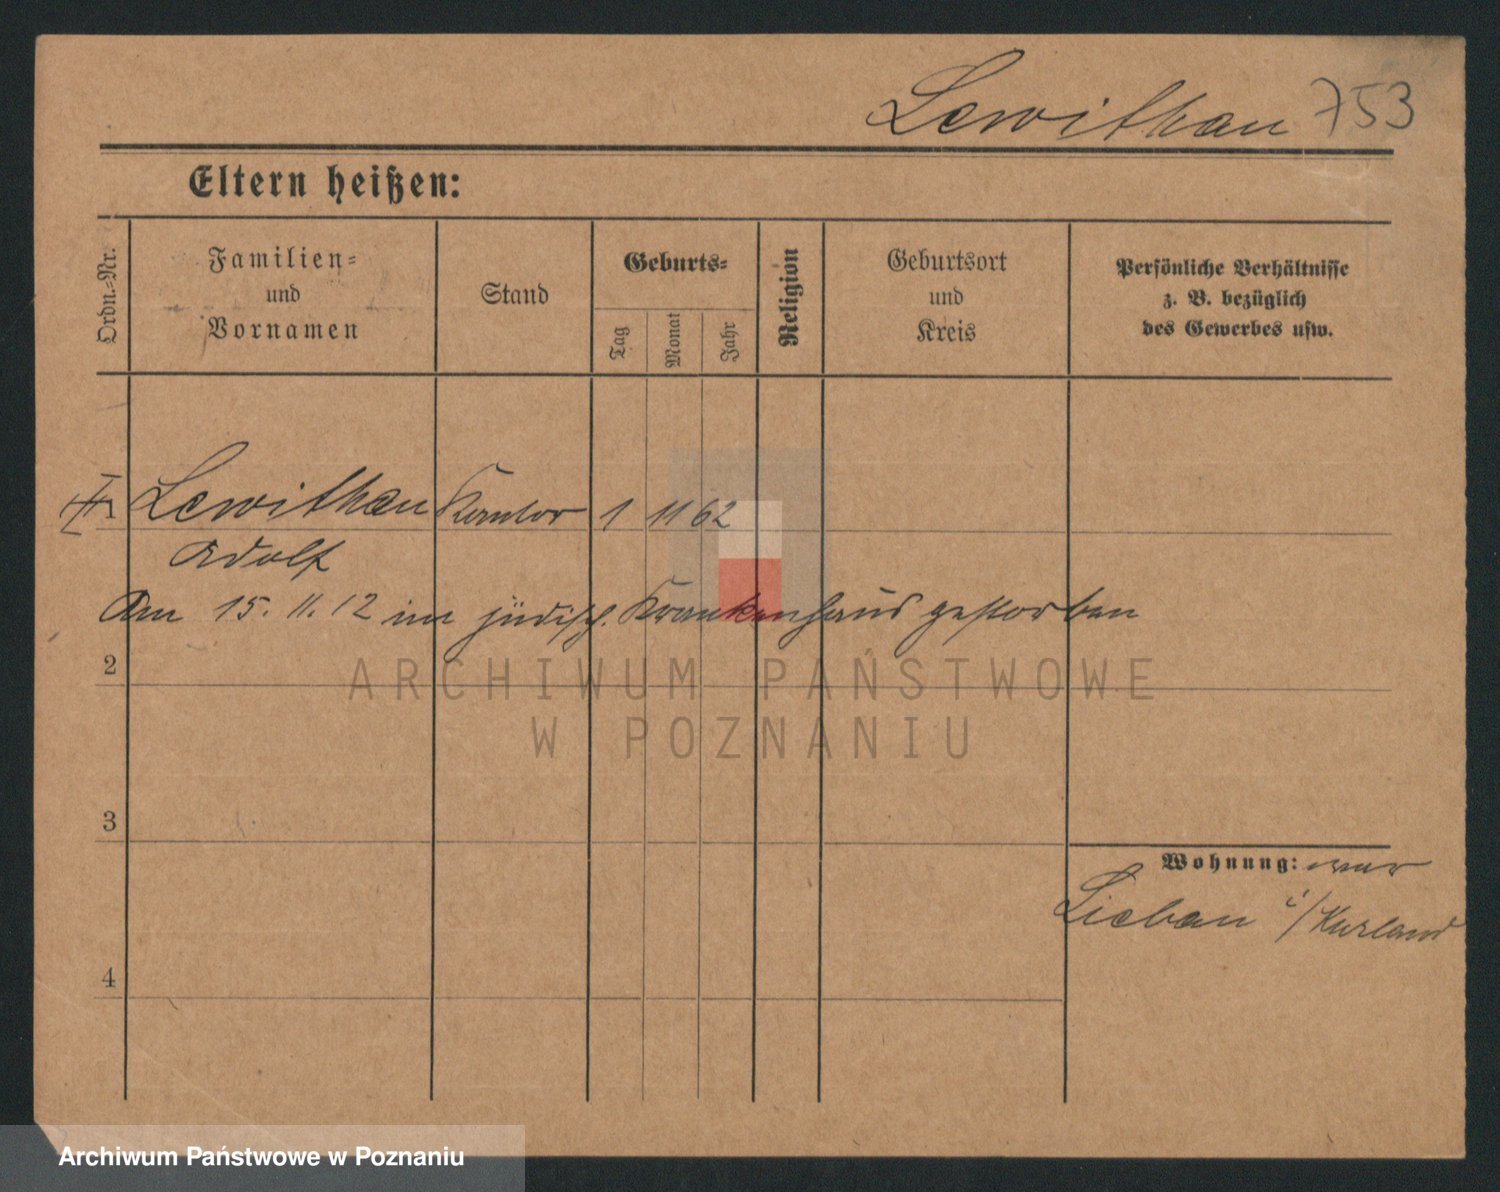 Lewithan 753
Eltern heißen:
Ordn.-Nr.
Familien-
und
Vornamen
Stand
Geburts-
Tag
Monat
Jahr
Religion
Geburtsort
und
Kreis
Persönliche Verhältnisse
z. B. bezüglich
des Gewerbes usw.
1 Lewithan Kantor 1 11 62
Adolf
Am 15. 11. 12 im jüdisch. Krankenhaus gestorben
2
ARCHIWUM PAŃSTWOWE
W POZNANIU
3
Wohnung: war
Liebau i/Kurland
4
Archiwum Państwowe w Poznaniu